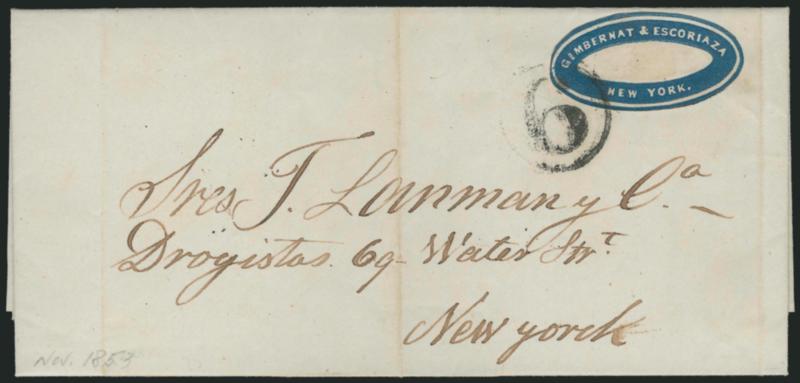 GIMBERNAT & ESCORIAZA
NEW YORK.
6
Sres J. Lanman y Ca
Drogistas. 69 Water Strt
New yorck
Nov. 1853